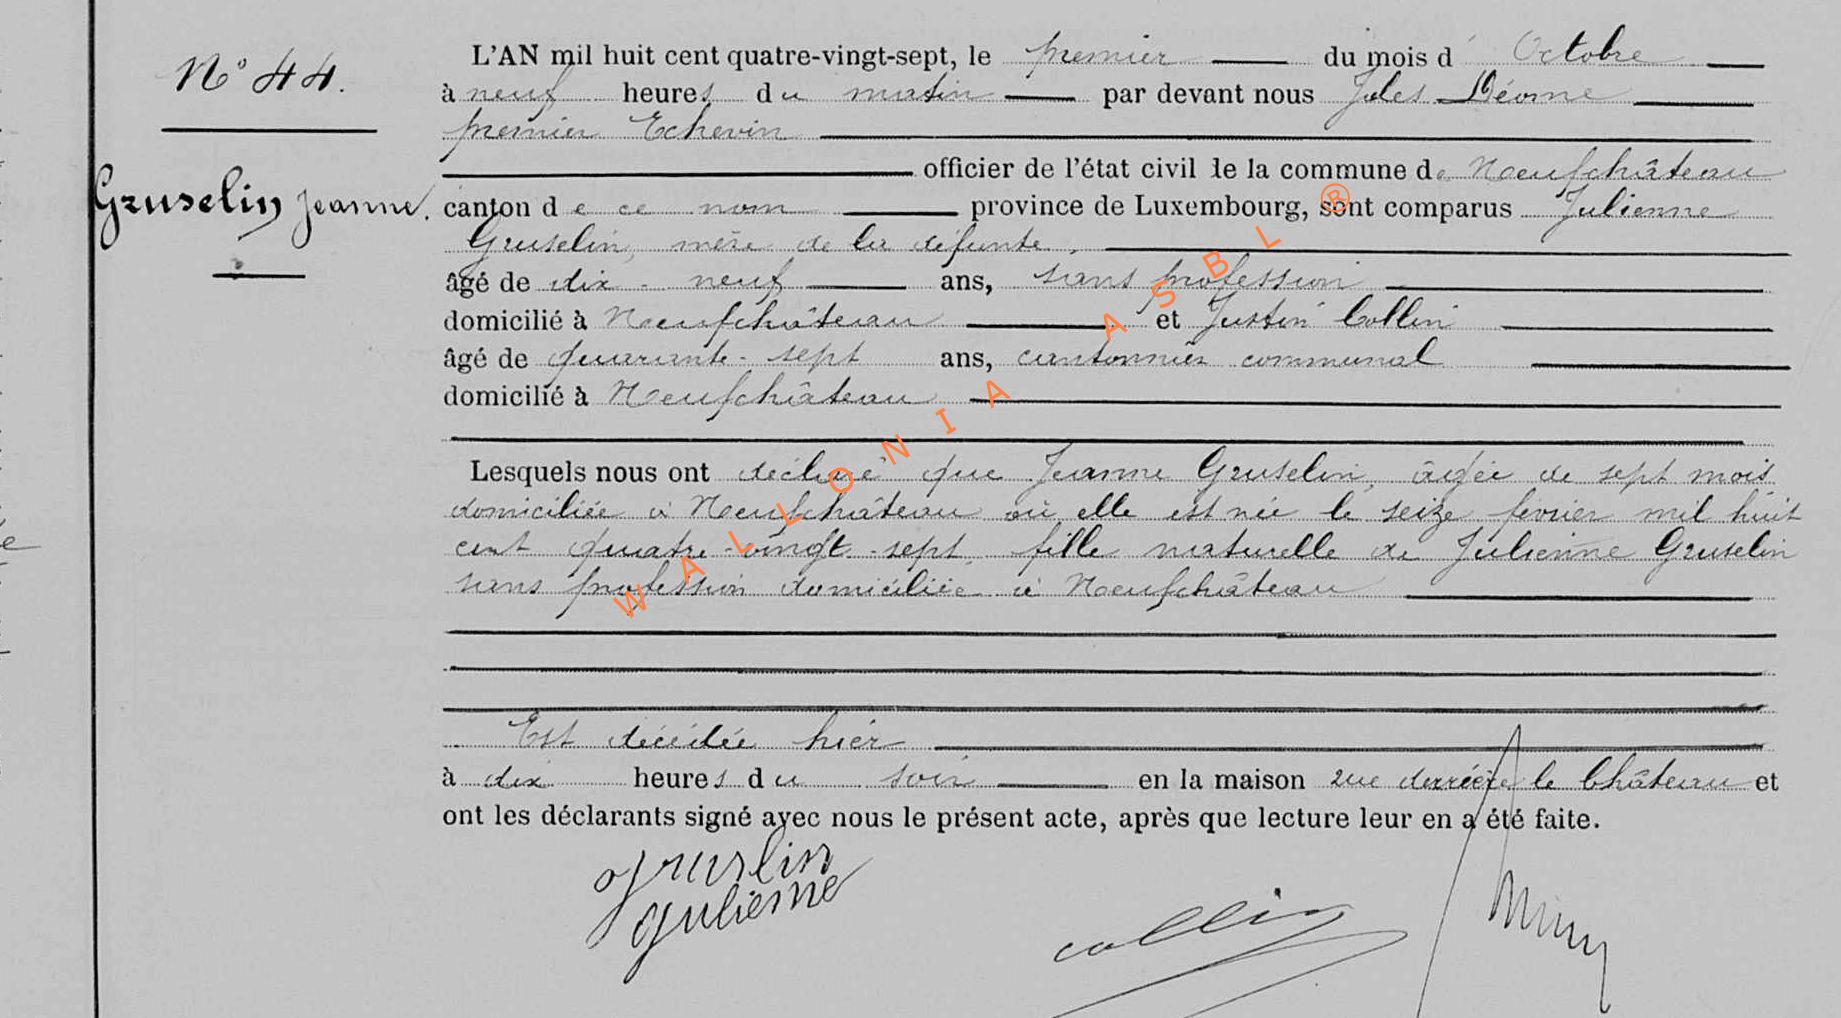 N° 44.
Gruselin Jeanne.
L'AN mil huit cent quatre-vingt-sept, le premier du mois d' Octobre
à neuf heures du matin par devant nous Jules
premier Echevin
officier de l'état civil de la commune de Neufchâteau
canton de ce nom province de Luxembourg, sont comparus Julienne
Gruselin, mère de la défunte,
âgé de dix-neuf ans, sans profession
domicilié à Neufchâteau et Justin Collin
âgé de quarante-sept ans, cantonnier communal
domicilié à Neufchâteau
Lesquels nous ont déclaré que Jeanne Gruselin, âgée de sept mois
domiciliée à Neufchâteau où elle est née le seize février mil huit
cent quatre-vingt-sept, fille naturelle de Julienne Gruselin
sans profession domiciliée à Neufchâteau
Est décédée hier
à dix heures du soir en la maison rue derrière le Château et
ont les déclarants signé avec nous le présent acte, après que lecture leur en a été faite.
Gruslin
Julienne
collin
WALLONIA ASBL ®